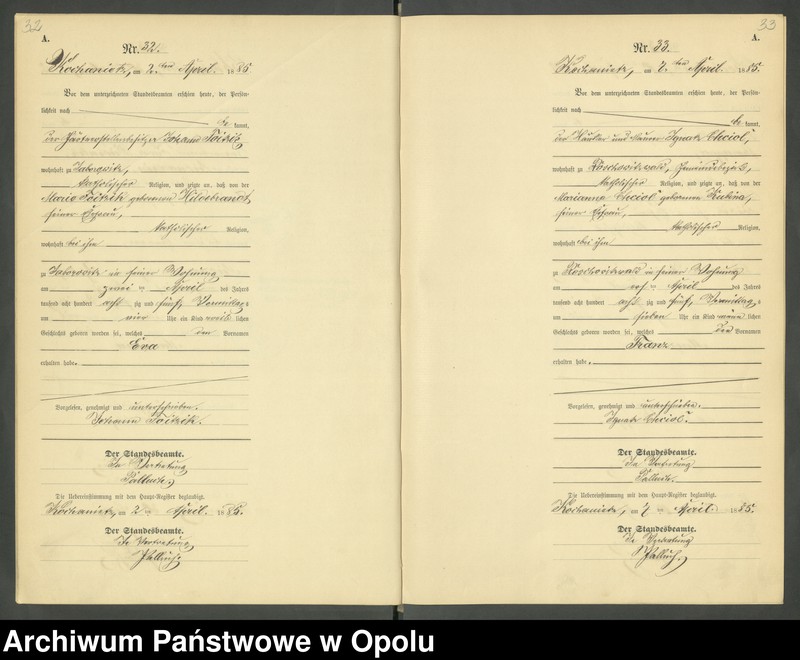 32
A.
Nr. 32.
Kochanietz, am 2. ten April 1885
Vor dem unterzeichneten Standesbeamten erschien heute, der Persön-
lichkeit nach
be kannt,
der Gärtnerstellenbesitzer Johann
wohnhaft zu
katholischer Religion, und zeigte an, daß von der
Maria geborenen Hildebrandt,
seiner Ehefrau,
katholischer Religion,
wohnhaft bei ihm
zu in seiner Wohnung
am zwei ten April des Jahres
tausend acht hundert acht zig und fünf, Vormittags
um vier Uhr ein Kind weib lichen
Geschlechts geboren worden sei, welches den Vornamen
Eva
erhalten habe.
Vorgelesen, genehmigt und unterschrieben.
Johann
Der Standesbeamte.
In Vertretung
Die Uebereinstimmung mit dem Haupt-Register beglaubigt.
Kochanietz, am 2 ten April 1885.
Der Standesbeamte.
In Vertretung
33
A.
Nr. 33.
Kochanietz, am 7. ten April 1885.
Vor dem unterzeichneten Standesbeamten erschien heute, der Persön-
lichkeit nach
be kannt,
der Häusler und Ignatz
wohnhaft zu
katholischer Religion, und zeigte an, daß von der
Marianna geborenen
seiner Ehefrau,
katholischer Religion,
wohnhaft bei ihm
zu in seiner Wohnung
am ten April des Jahres
tausend acht hundert acht zig und fünf, Vormittags
um sieben Uhr ein Kind männ lichen
Geschlechts geboren worden sei, welches den Vornamen
Franz
erhalten habe.
Vorgelesen, genehmigt und unterschrieben.
Ignatz
Der Standesbeamte.
In Vertretung
Die Uebereinstimmung mit dem Haupt-Register beglaubigt.
Kochanietz, am 7 ten April 1885.
Der Standesbeamte.
In Vertretung
Archiwum Państwowe w Opolu